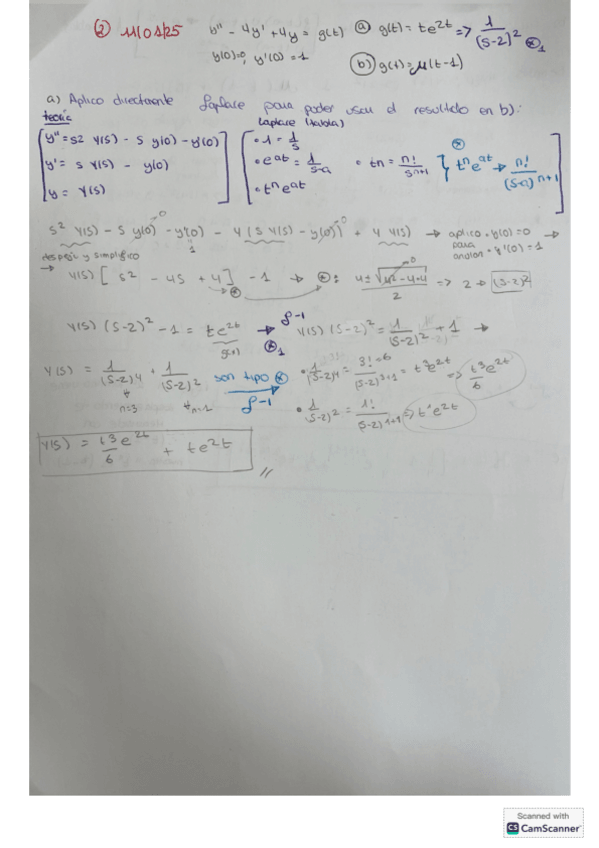 ② 11/01/25 y'' - 4y' + 4y = g(t) ⓐ g(t) = te^{2t} => 1/(s-2)² ⊛₁
y(0)=0, y'(0)=1 ⓑ g(t)=μ(t-1)
a) Aplico directamente Laplace para poder usar el resultado en b):
teoría Laplace (tabla)
y''= s2 Y(s) - s y(0) - y'(0) • 1 = 1/s ⊛
y'= s Y(s) - y(0) • e^{at} = 1/(s-a) • tn = n!/s^{n+1} } t^n e^{at} → n!/(s-a)^{n+1}
y = Y(s) • t^n e^{at}
s² Y(s) - s y(0) - y'(0) - 4 (s Y(s) - y(0)) + 4 Y(s) → aplico • y(0)=0 → para anular • y'(0) = 1
despejo y simplifico
→ Y(s) [ s² - 4s + 4 ] - 1 → ⊛: 4 ± √(4² - 4·4) / 2 => 2 → (s-2)²
Y(s) (s-2)² - 1 = te^{2t} → ℒ-1 Y(s) (s-2)² = 1/(s-2)² + 1 →
g(t) ⊛₁
Y(s) = 1/(s-2)4 + 1/(s-2)² son tipo ⊛ • 1/(s-2)4 = 3!→6/(s-2)^{3+1} = t³e^{2t} => t³e^{2t}/6
n=3 n=1 ℒ-1 • 1/(s-2)² = 1!/(s-2)^{1+1} => t'e^{2t}
Y(s) = t³e^{2t}/6 + te^{2t} //
Scanned with
CS CamScanner